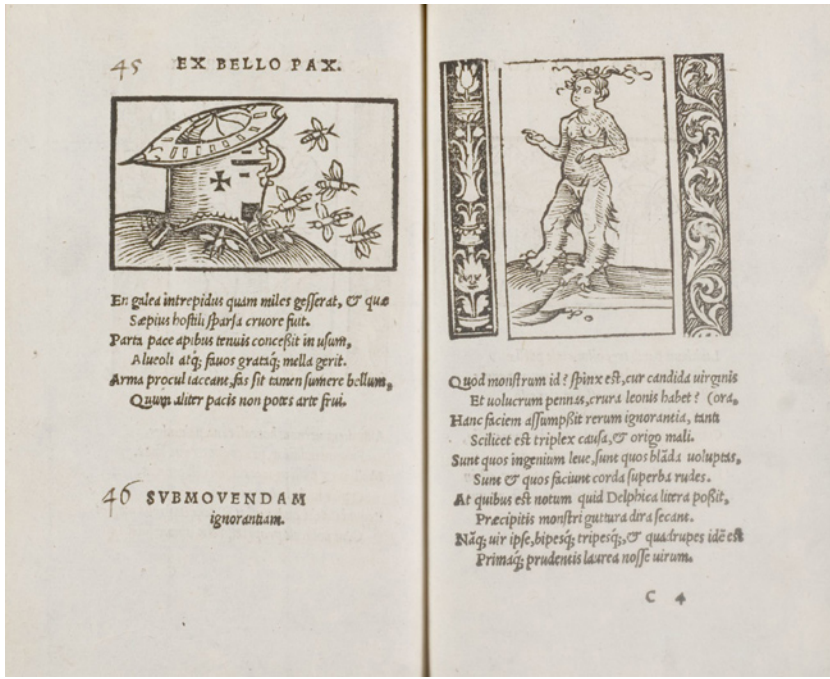 45 EX BELLO PAX.
En galea intrepidus quam miles gesserat, & quæ
Sæpius hostili sparsa cruore fuit.
Parta pace apibus tenuis concessit in usum,
Alueoli atq; fauos grataq; mella gerit.
Arma procul iaceant, fas sit tamen sumere bellum,
Quum aliter pacis non potes arte frui.
46 SVBMOVENDAM
ignorantiam.
Quod monstrum id? sphinx est, cur candida uirginis
Et uolucrum pennas, crura leonis habet? (ora,
Hanc faciem assumpsit rerum ignorantia, tanti
Scilicet est triplex causa, & origo mali.
Sunt quos ingenium leue, sunt quos blãda uoluptas,
Sunt & quos faciunt corda superba rudes.
At quibus est notum quid Delphica litera possit,
Præcipitis monstri guttura dira secant.
Nãq; uir ipse, bipesq; tripesq;, & quadrupes idẽ est
Primaq; prudentis laurea nosse uirum.
C 4